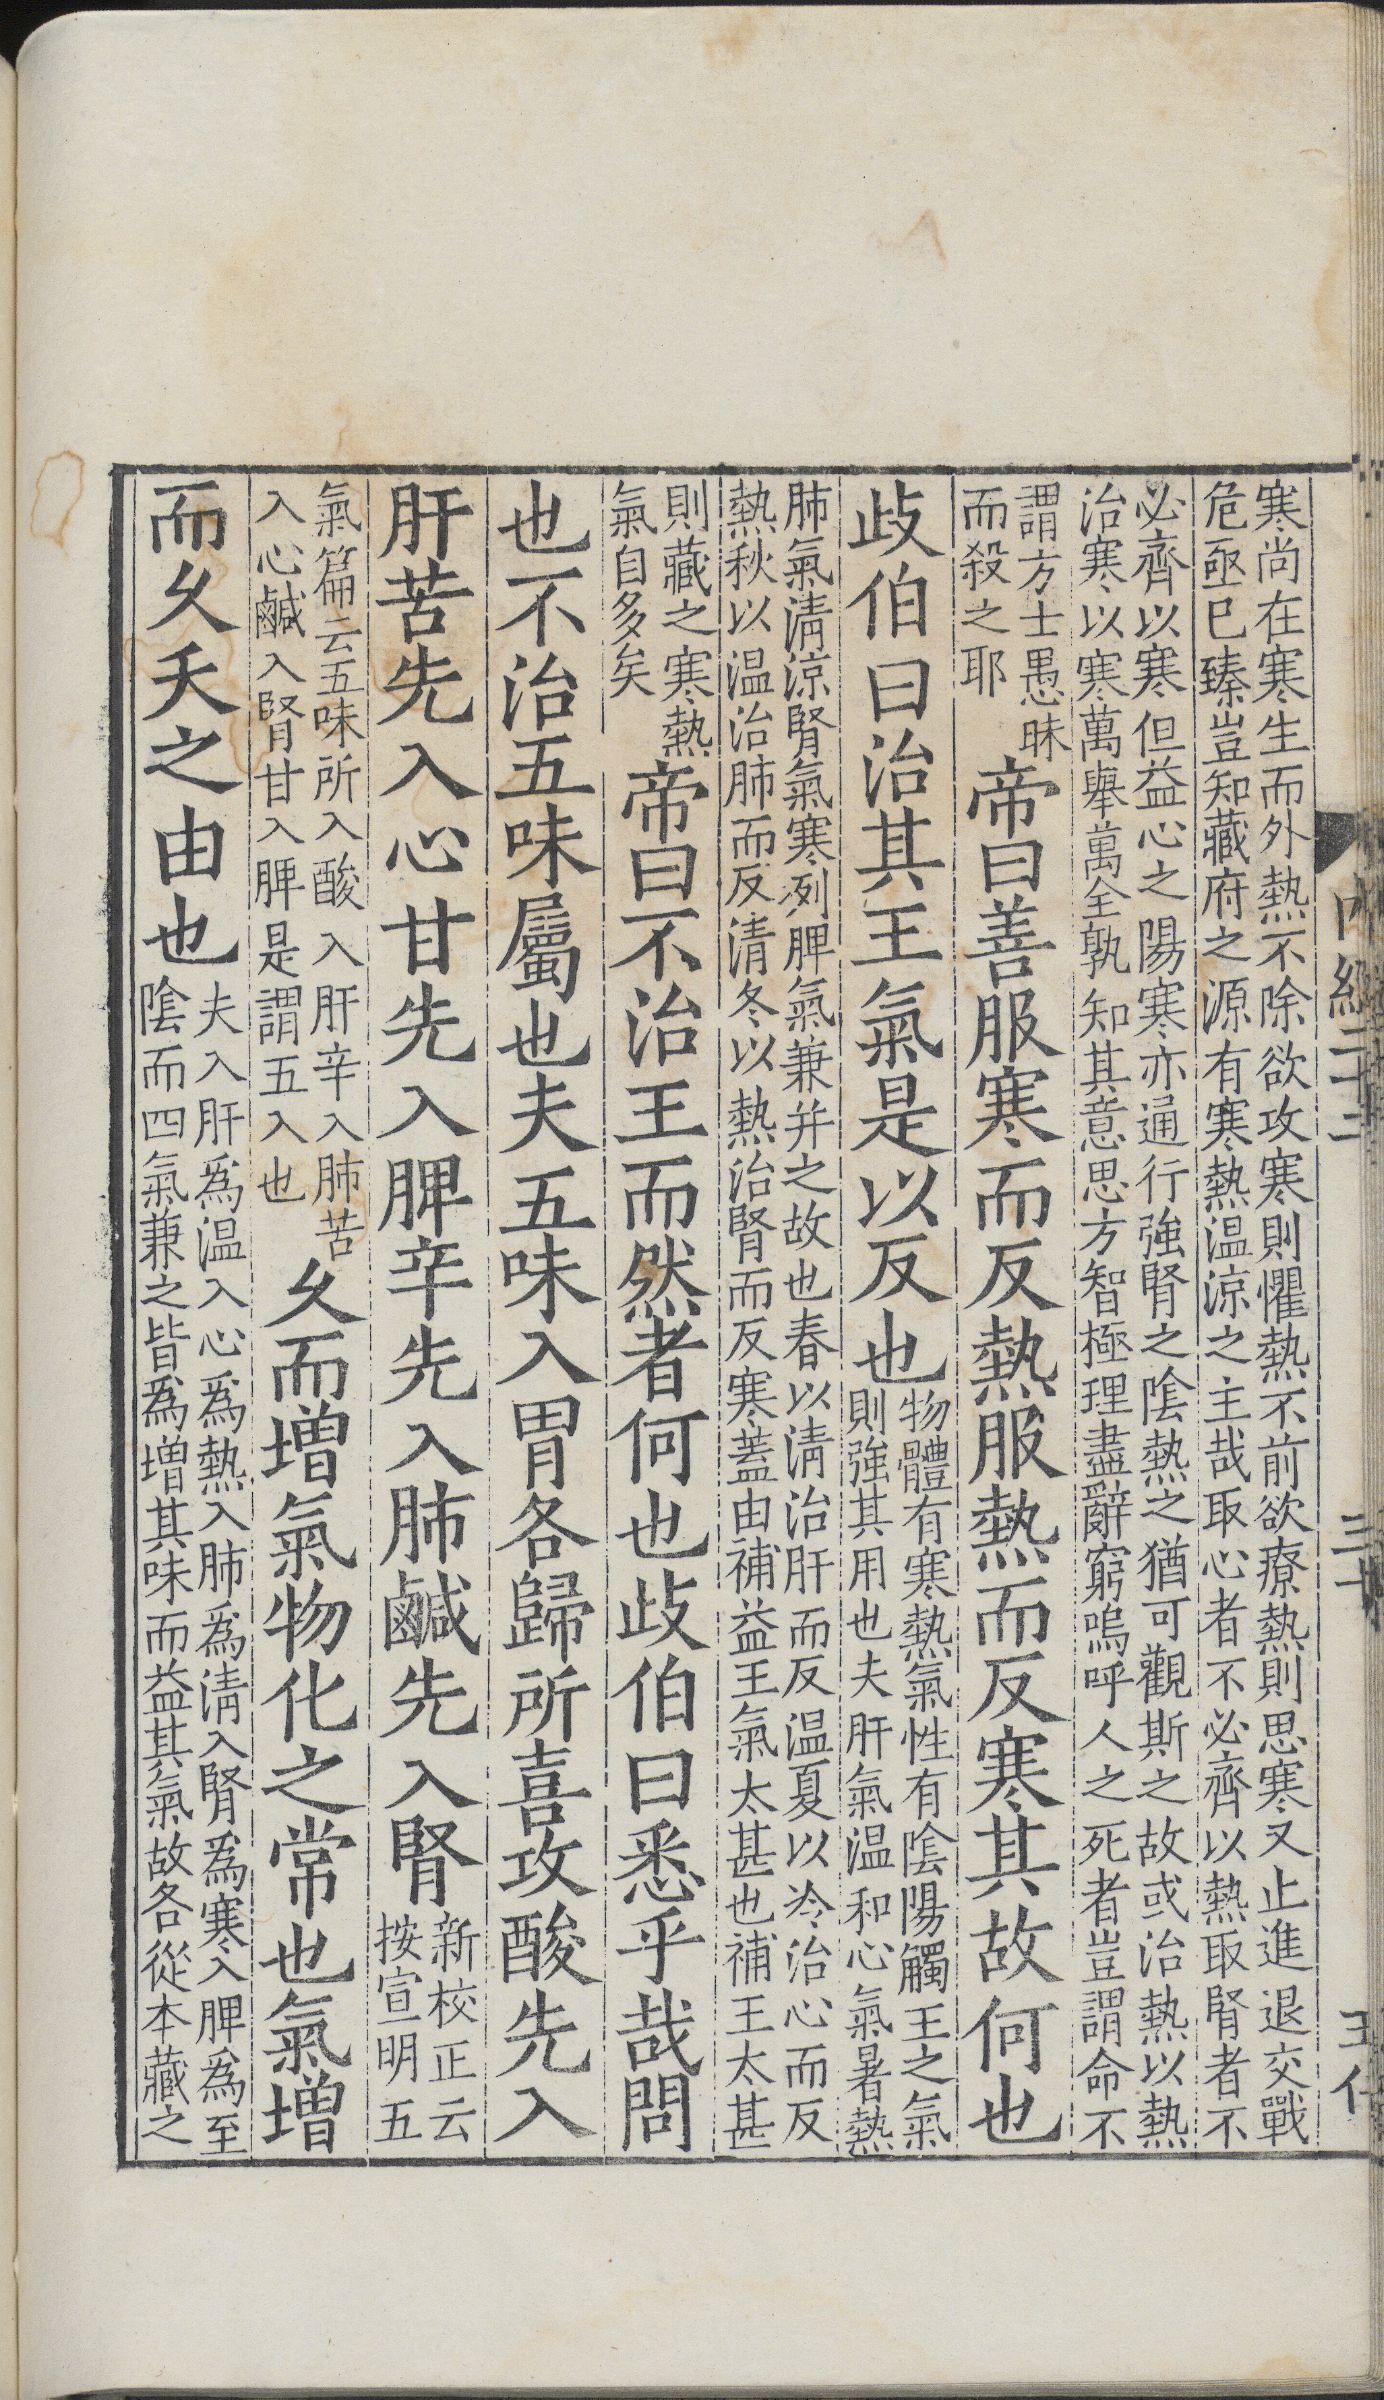 寒尚在寒生而外熱不除欲攻寒則懼熱不前欲療熱則思寒又止進退交戰
危亟已臻豈知藏府之源有寒熱温涼之主哉取心者不必齊以熱取腎者不
必齊以寒但益心之陽寒亦通行強腎之陰熱之猶可觀斯之故或治熱以熱
治寒以寒萬舉萬全孰知其意思方智極理盡辭窮嗚呼人之死者豈謂命不
謂方士愚昧
而殺之耶
帝曰善服寒而反熱服熱而反寒其故何也
歧伯曰治其王氣是以反也
物體有寒熱氣性有陰陽觸王之氣
則強其用也夫肝氣温和心氣暑熱
肺氣淸涼腎氣寒列脾氣兼并之故也春以淸治肝而反温夏以冷治心而反
熱秋以温治肺而反清冬以熱治腎而反寒蓋由補益王氣太甚也補王太甚
則藏之寒熱
氣自多矣
帝曰不治王而然者何也歧伯曰悉乎哉問
也不治五味屬也夫五味入胃各歸所喜攻酸先入
肝苦先入心甘先入脾辛先入肺鹹先入腎
新校正云
按宣明五
氣篇云五味所入酸入肝辛入肺苦
入心鹹入腎甘入脾是謂五入也
久而增氣物化之常也氣增
而久夭之由也
夫入肝爲温入心爲熱入肺爲淸入腎爲寒入脾爲至
陰而四氣兼之皆爲增其味而益其氣故各從本藏之
内經二十二
三十